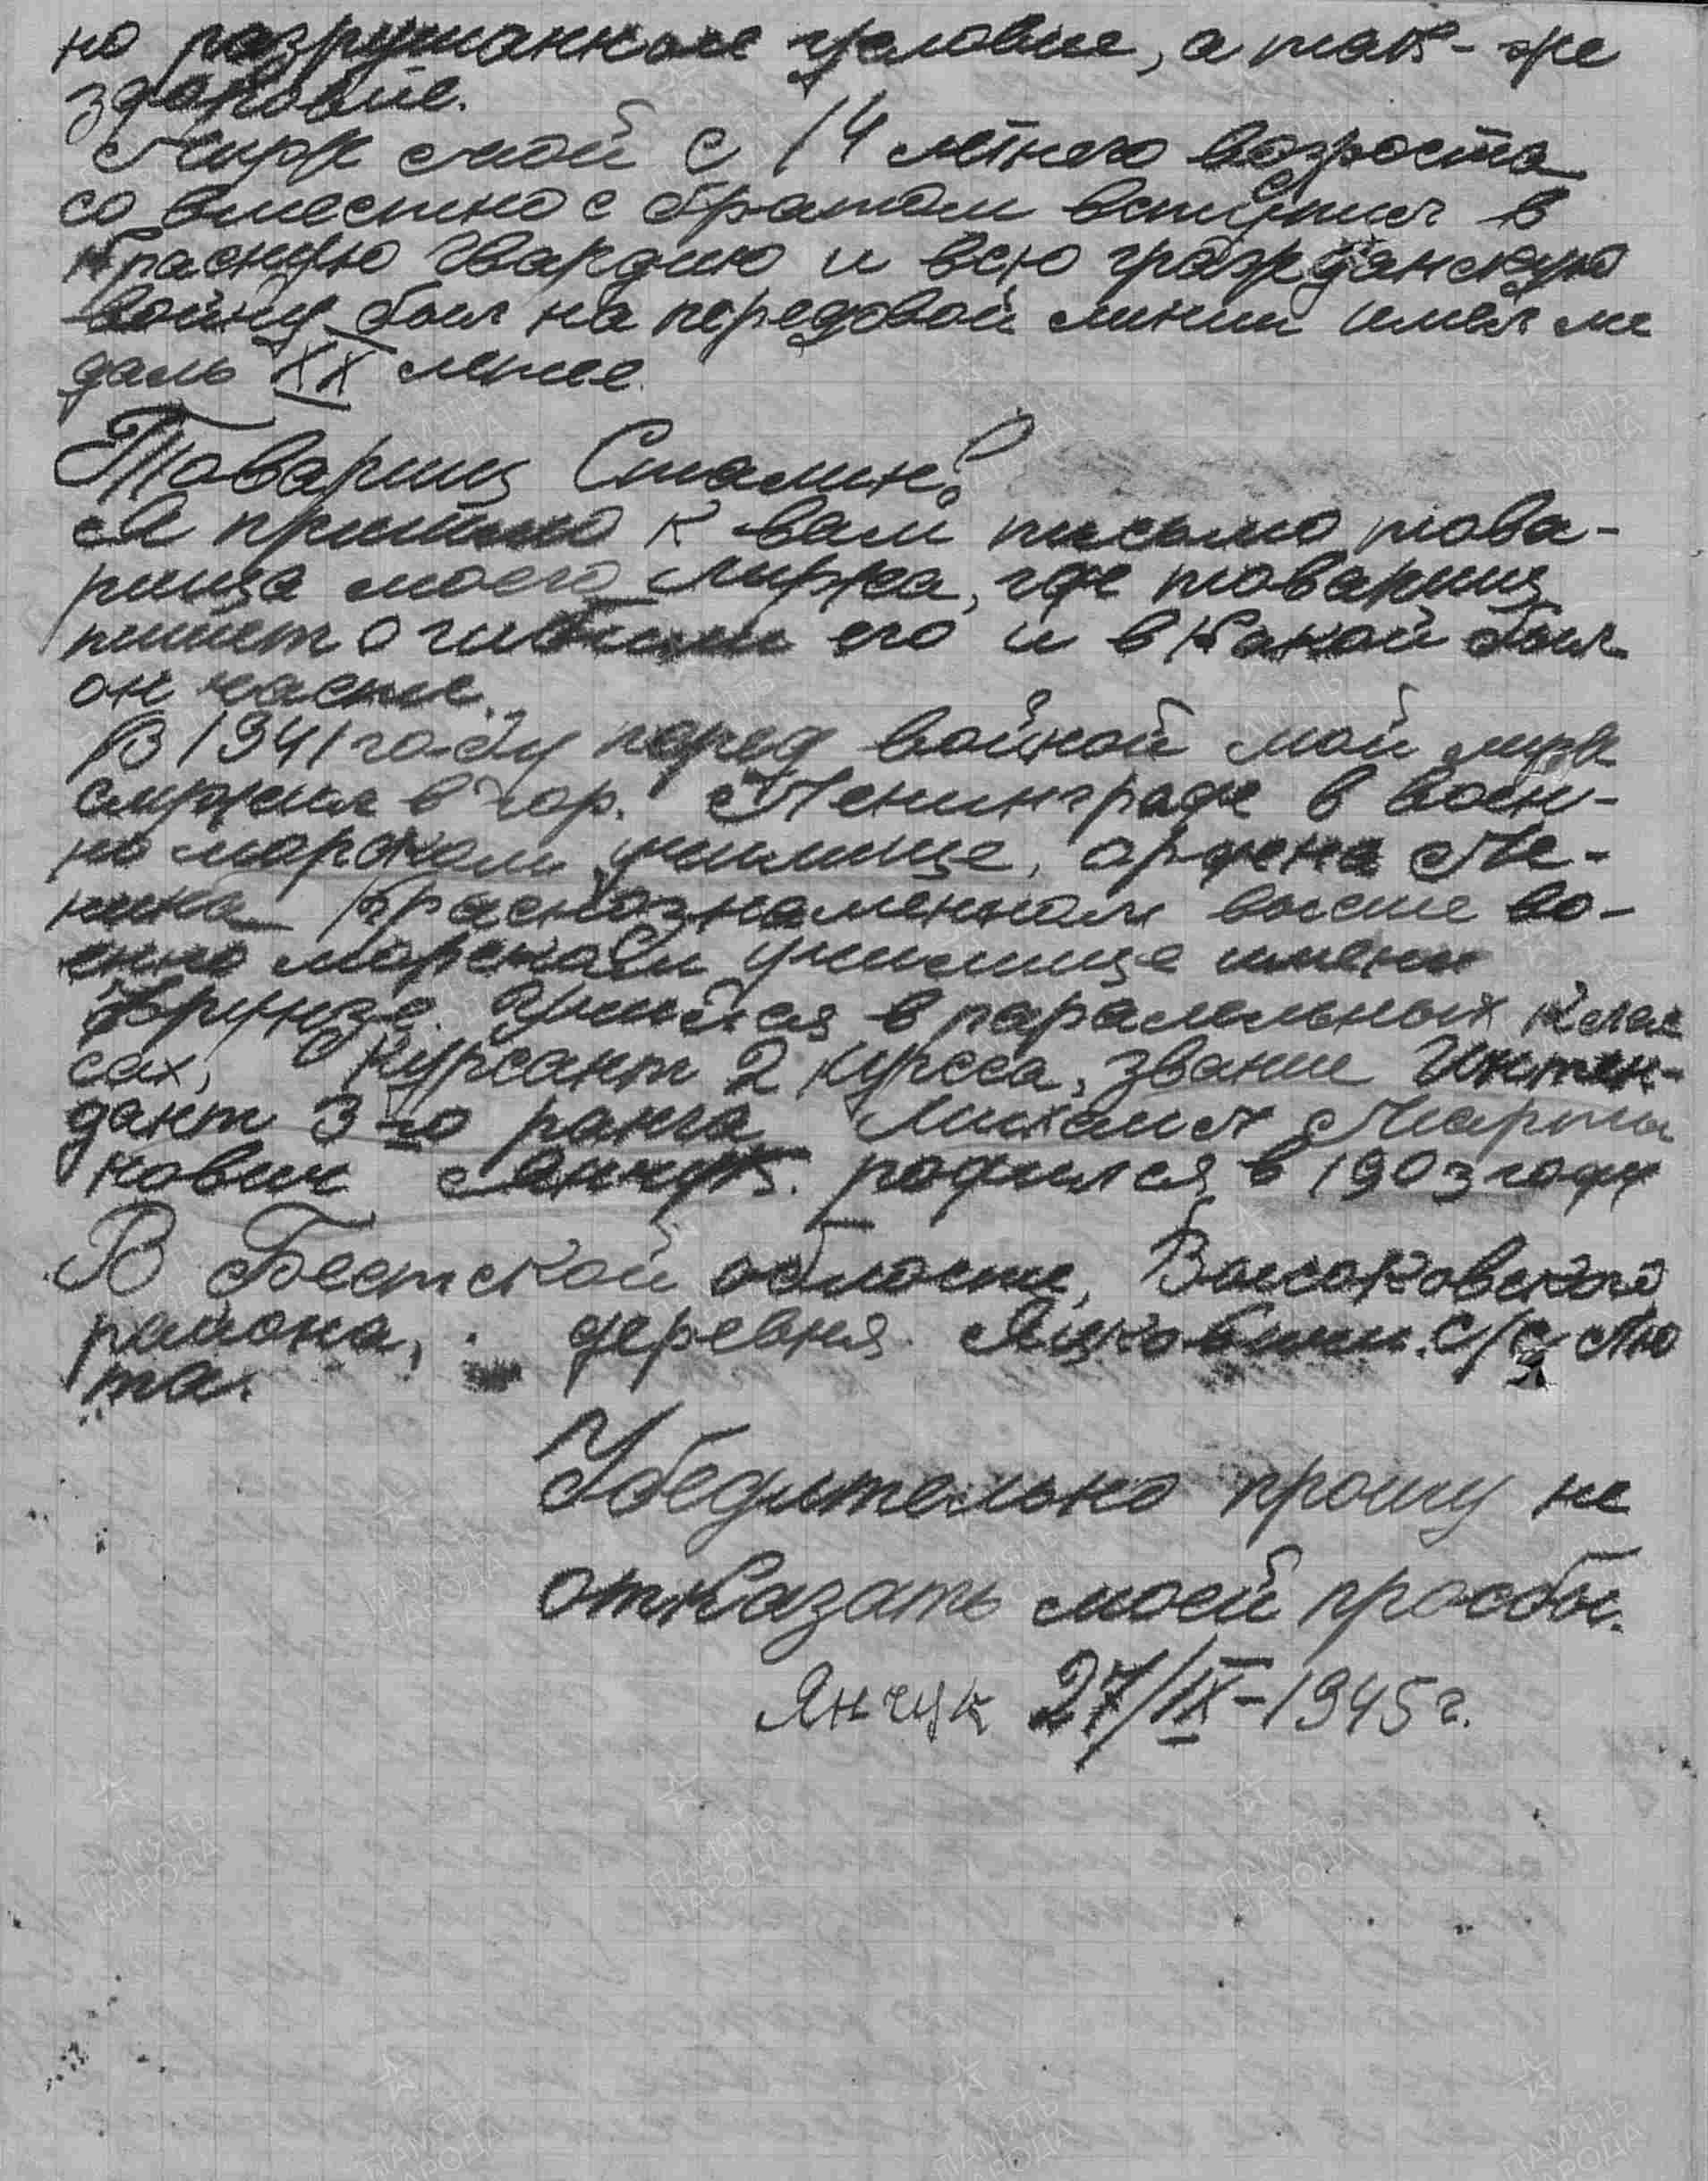 но разрушанные условие, а так-же
здоровие.
Муж мой с 14 летнего возроста
со вместно с братом вступил в
красную гвардию и всю гражданскую
войну был на передовой линии имел ме
даль XX летие.
Товарищ Сталин!
Я пришлю к вам письмо това-
рища моего мужа, где товарищ
пишет о гибели его и в какой был
он части.
В 1941 году перед войной мой муж
служил в гор. Ленинграде в воен-
но морском училище, ордена Ле-
нина Краснознаменном высше во-
енно морском училище имени
Фрунзе. Учился в паралельных клас
сах, Курсант 2 курсса, звание Интен-
дант 3-го ранга Михаил Марты
нович Янчук. родился в 1903 году
В Бестской области, Высоковского
района, деревня Яцковичи. С/С Лю
та.
Убедительно прошу не
отказать моей просбы.
Янчук 27/IX-1945 г.
ПАМЯТЬ
НАРОДА